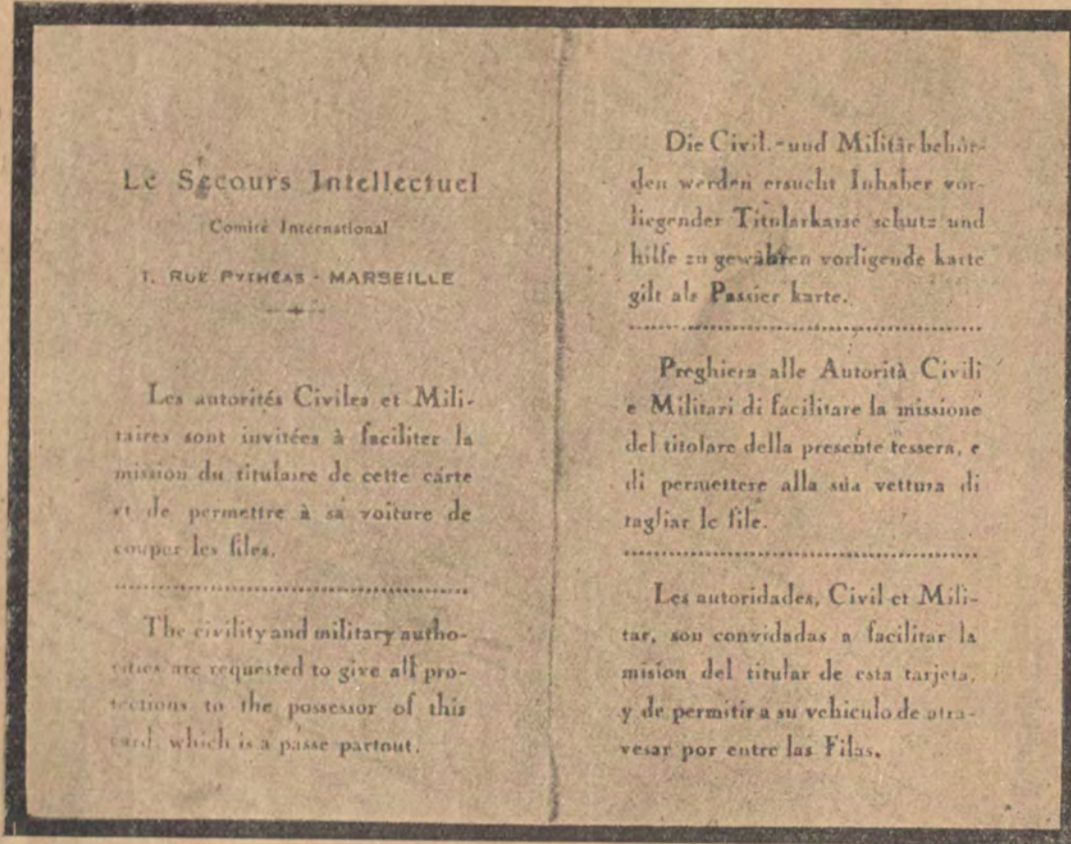 Le Secours Intellectuel
Comité International
1, RUE PYTHÉAS - MARSEILLE
Les autorités Civiles et Mili-
taires sont invitées à faciliter la
mission du titulaire de cette carte
et de permettre à sa voiture de
couper les files.
The civility and military autho-
rities are requested to give all pro-
tections to the possessor of this
card, which is a passe partout.
Die Civil.-und Militär behör-
den werden ersucht Inhaber vor-
liegender Titularkarse schutz und
hilfe zu gewähren vorligende karte
gilt als Passier karte.
Preghiera alle Autorità Civili
e Militari di facilitare la missione
del titolare della presente tessera, e
di permettere alla sua vettura di
tagliar le file.
Les autoridades, Civil et Mili-
tar, son convidadas a facilitar la
mision del titular de esta tarjeta,
y de permitir a su vehiculo de atra-
vesar por entre las Filas.